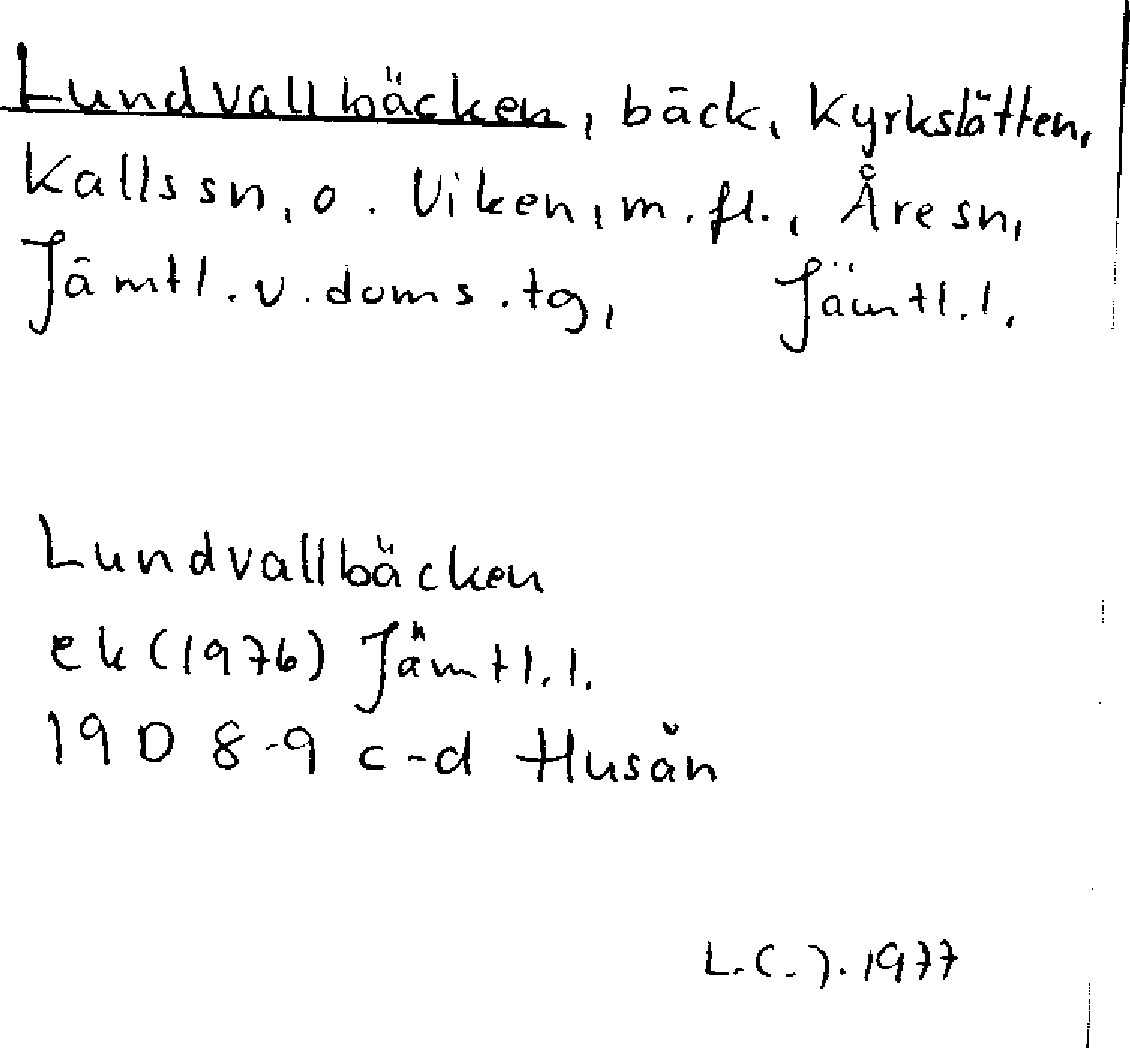 Lundvallbäcken, bäck, Kyrkslätten,
Kalls sn, o. Viken, m. fl., Åre sn,
Jämtl. v. doms. tg, Jämtl. l.
Lundvallbäcken
ek (1976) Jämtl. l.
19 D 8-9 c-d Husån
L. C. J. 1977